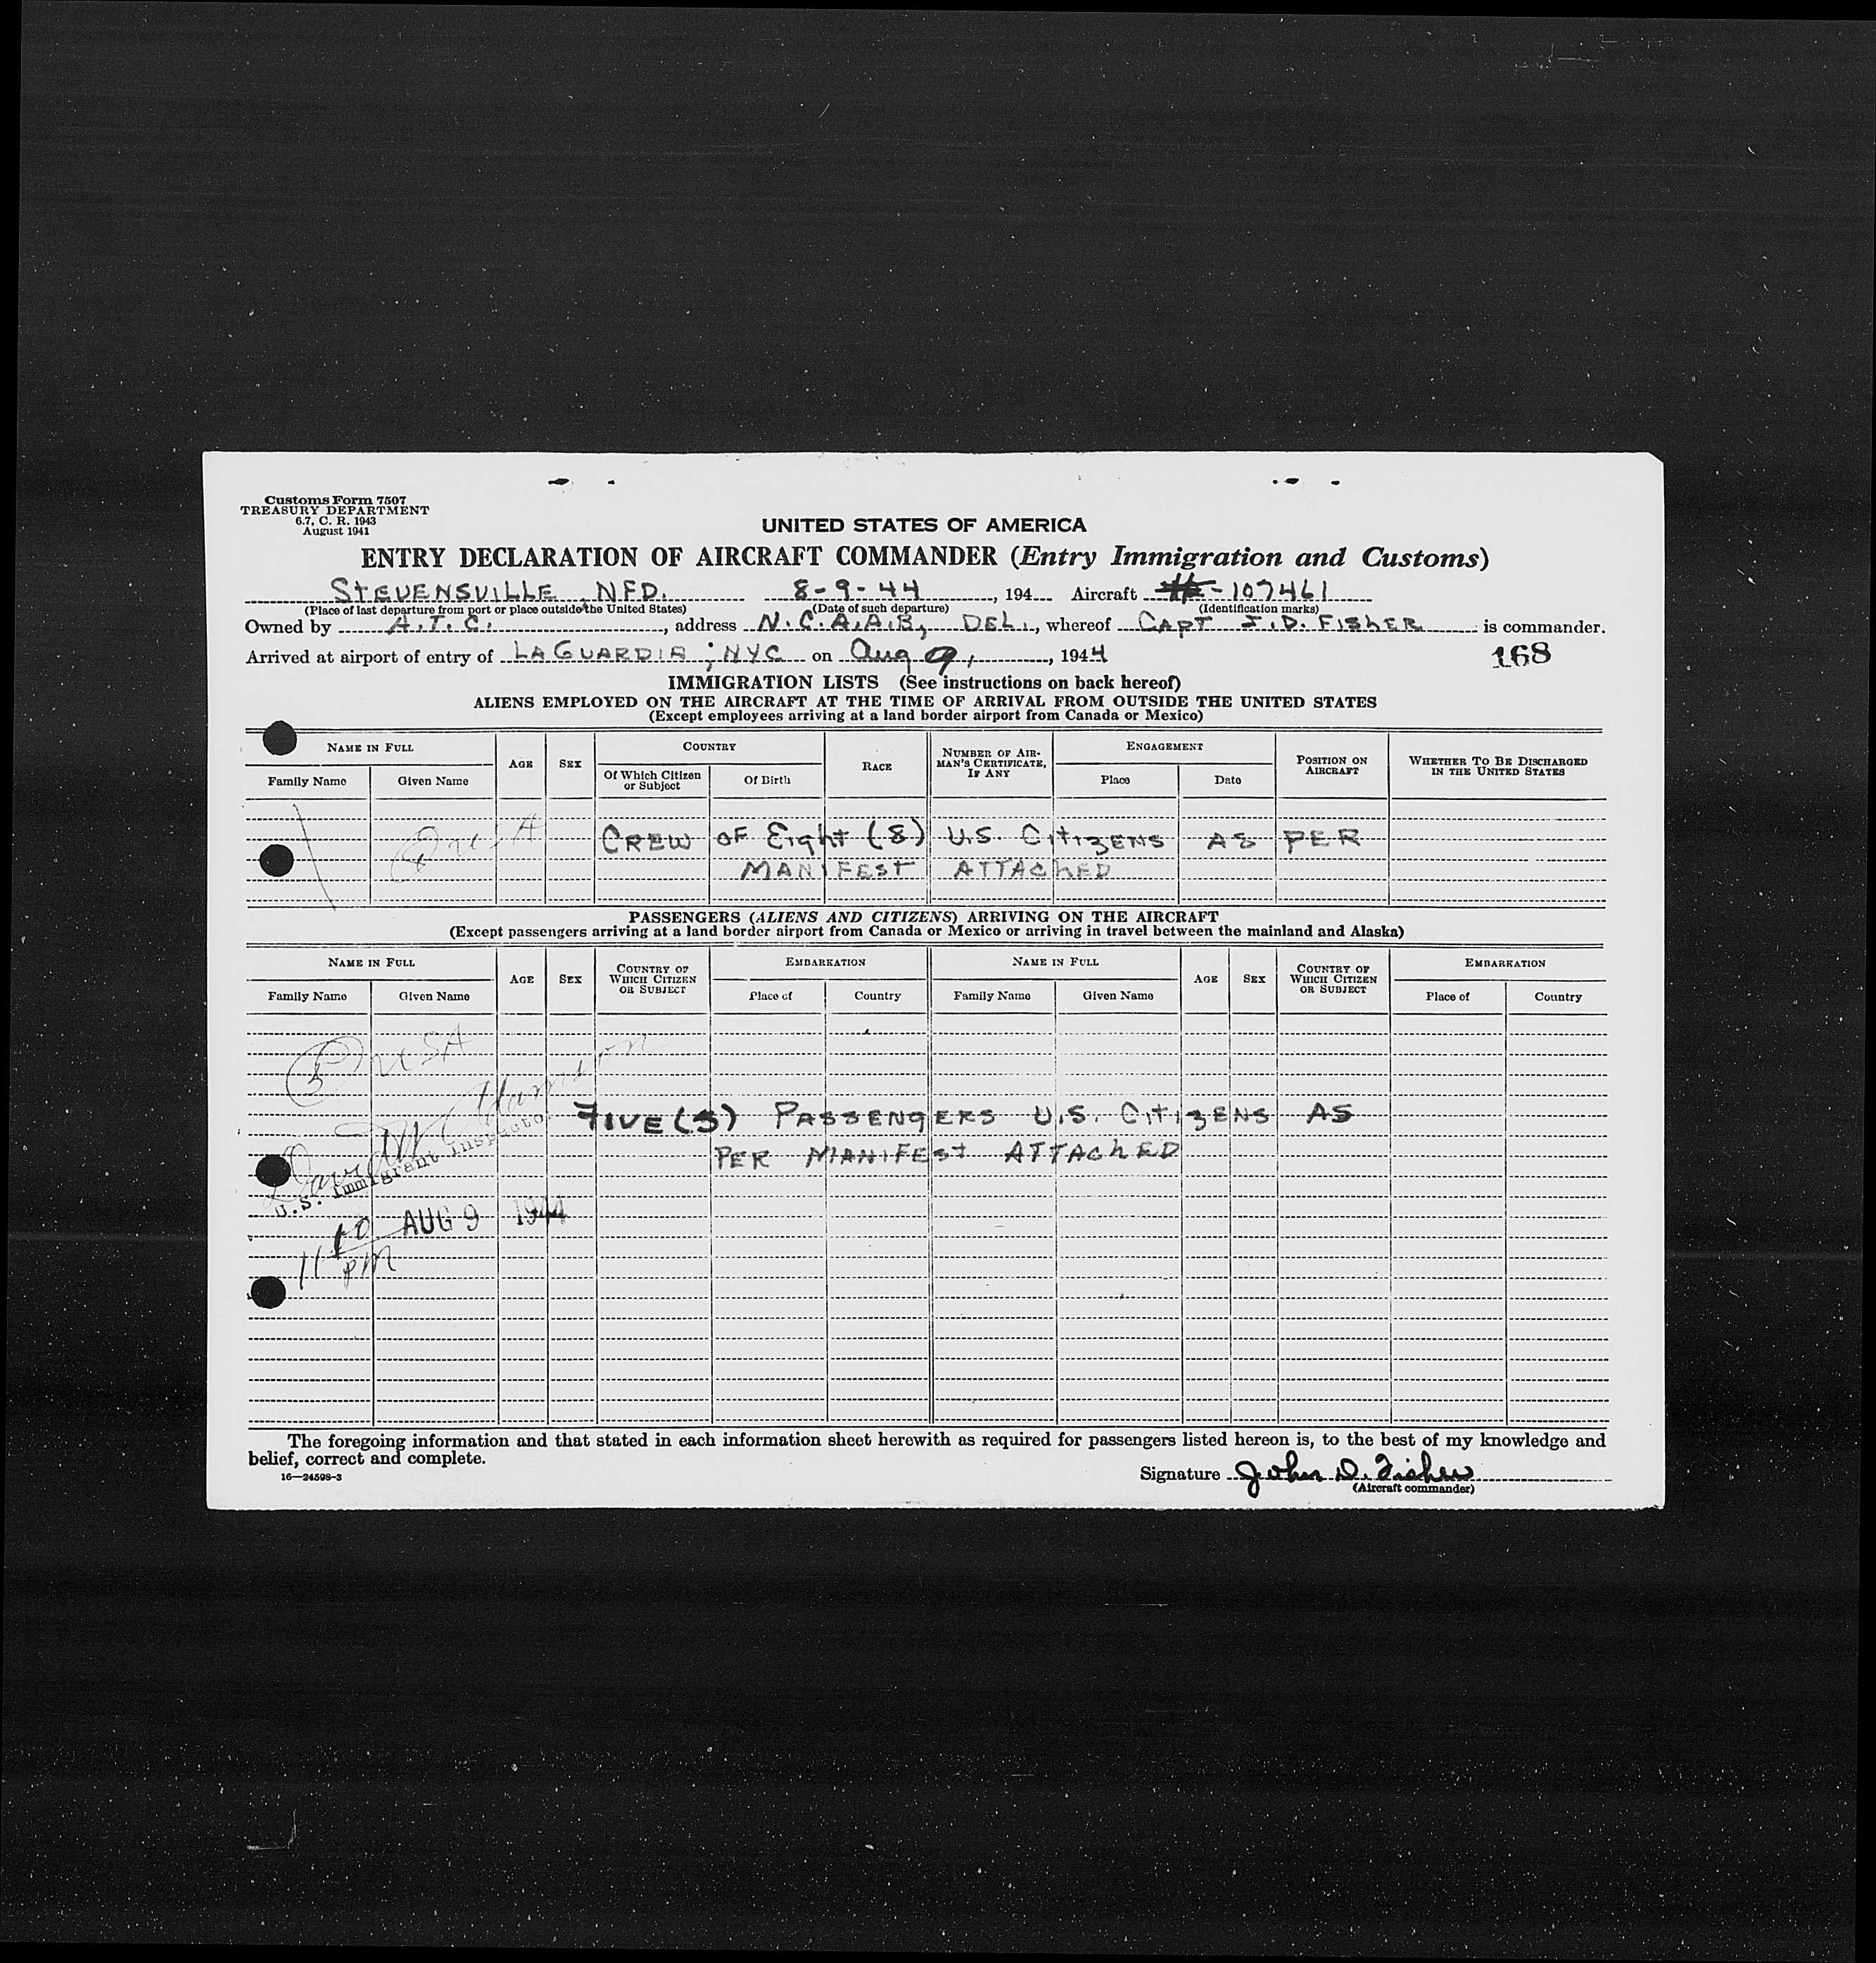 Customs Form 7507
TREASURY DEPARTMENT
6.7, C. R. 1943
August 1941
UNITED STATES OF AMERICA
ENTRY DECLARATION OF AIRCRAFT COMMANDER (Entry Immigration and Customs)
STEVENSVILLE, NFD. 8-9-44, 194 Aircraft -107461
(Place of last departure from port or place outside the United States) (Date of such departure) (Identification marks)
Owned by A.T.C., address N.C.A.A.B, DEL., whereof CAPT J.D. FISHER is commander.
Arrived at airport of entry of LAGUARDIA ; NYC on Aug 9, 1944 168
IMMIGRATION LISTS (See instructions on back hereof)
ALIENS EMPLOYED ON THE AIRCRAFT AT THE TIME OF ARRIVAL FROM OUTSIDE THE UNITED STATES
(Except employees arriving at a land border airport from Canada or Mexico)
NAME IN FULL AGE SEX COUNTRY RACE NUMBER OF AIRMAN'S CERTIFICATE, IF ANY ENGAGEMENT POSITION ON AIRCRAFT WHETHER TO BE DISCHARGED IN THE UNITED STATES
Family Name Given Name Of Which Citizen or Subject Of Birth Place Date
USA
CREW OF Eight (8) U.S. CITIZENS AS PER
MANIFEST ATTACHED
PASSENGERS (ALIENS AND CITIZENS) ARRIVING ON THE AIRCRAFT
(Except passengers arriving at a land border airport from Canada or Mexico or arriving in travel between the mainland and Alaska)
NAME IN FULL AGE SEX COUNTRY OF WHICH CITIZEN OR SUBJECT EMBARKATION NAME IN FULL AGE SEX COUNTRY OF WHICH CITIZEN OR SUBJECT EMBARKATION
Family Name Given Name Place of Country Family Name Given Name Place of Country
5 USA
FIVE (5) PASSENGERS U.S. CITIZENS AS
PER MANIFEST ATTACHED
U.S. Immigrant Inspector
AUG 9 1944
11 10 PM
The foregoing information and that stated in each information sheet herewith as required for passengers listed hereon is, to the best of my knowledge and
belief, correct and complete.
16—24598-3
Signature John D. Fisher
(Aircraft commander)